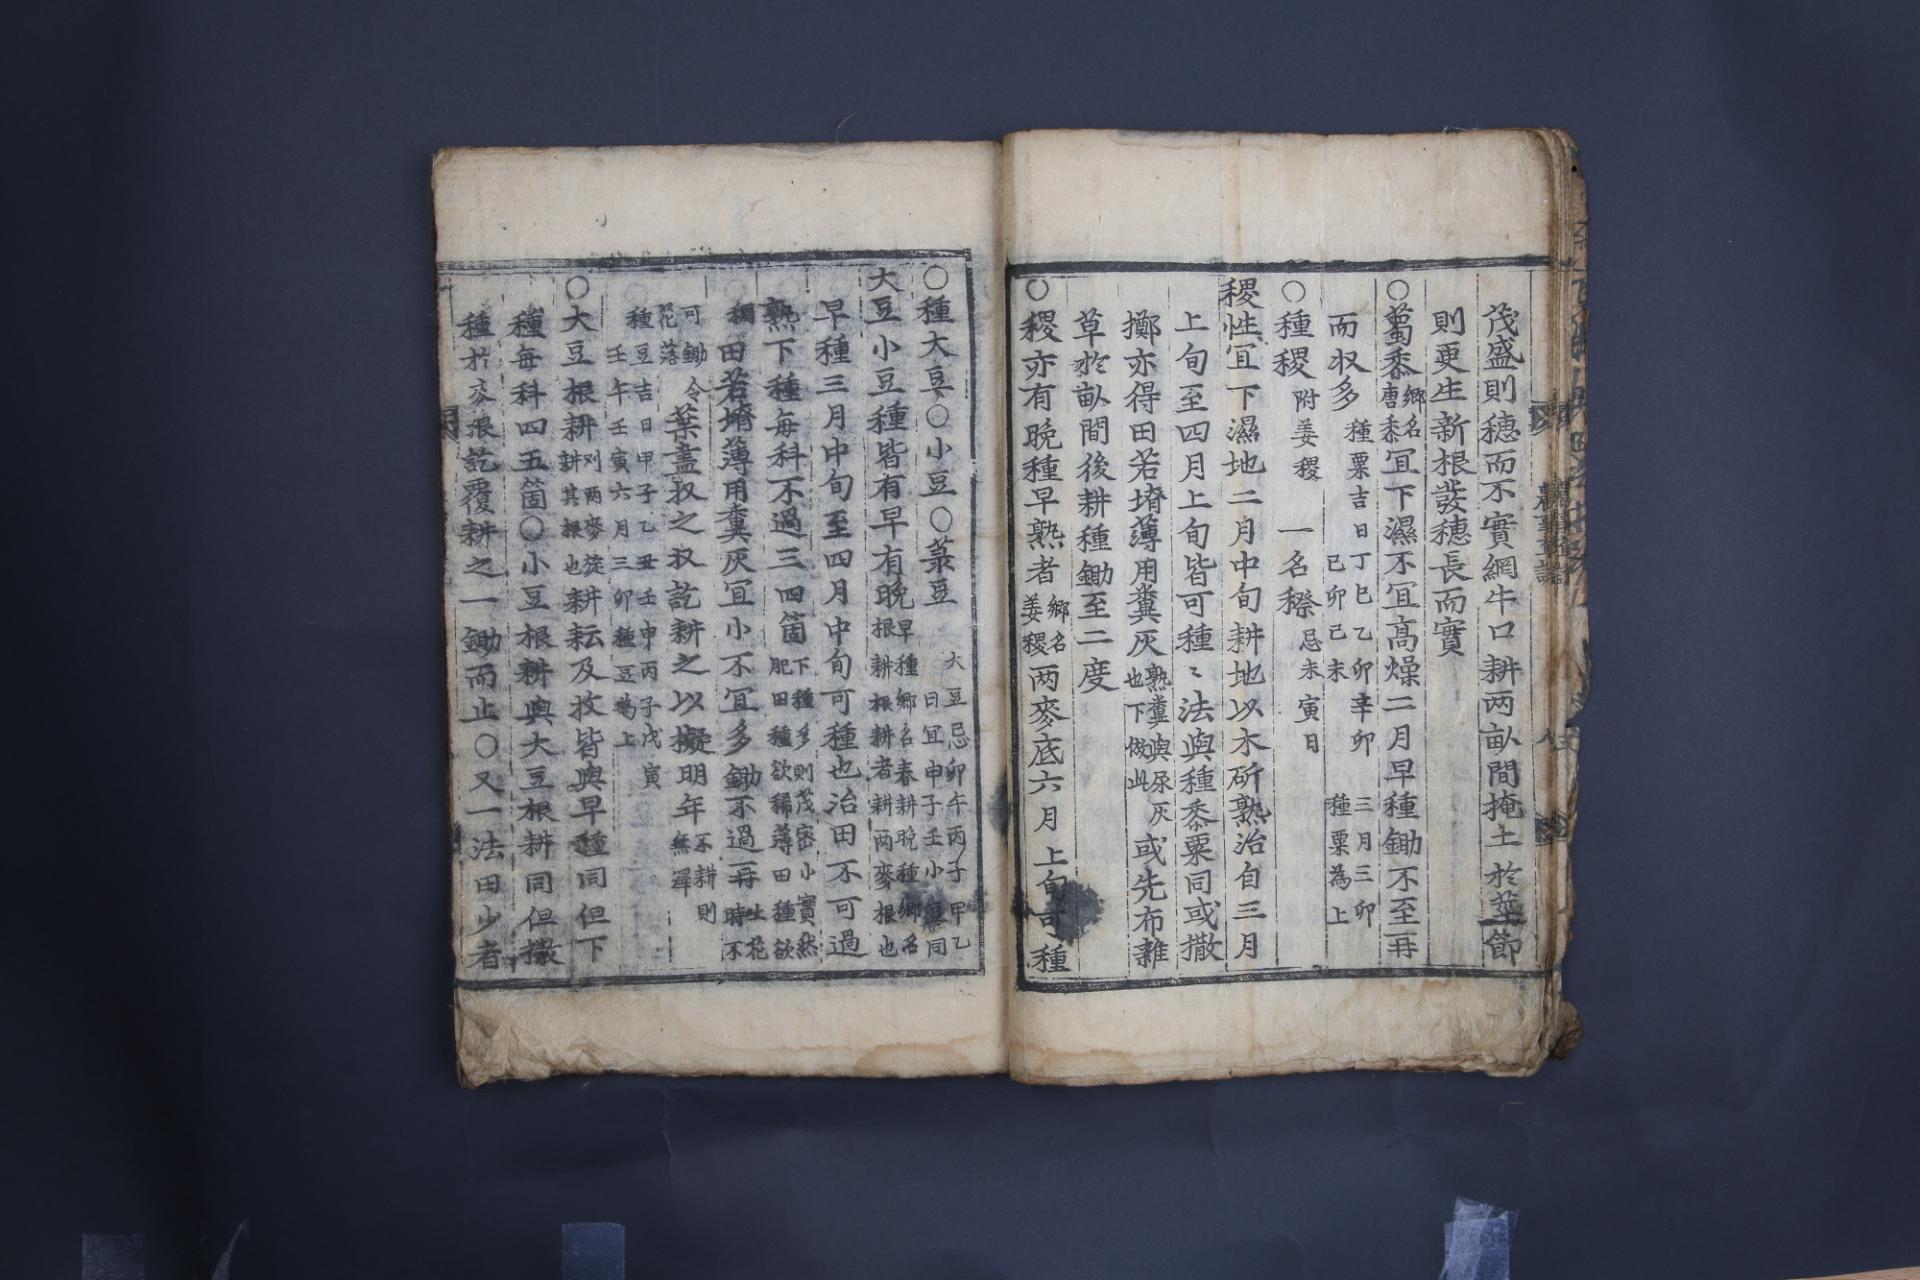 茂盛則穗而不實網牛口耕两畝間掩土於莖節
則更生新根發穗長而實
○蜀黍鄉名唐黍宜下濕不宜高燥二月早種鋤不至再
而収多種粟吉日丁巳乙卯辛卯己卯己未三月三卯種粟為上
○種稷附姜稷一名穄忌未寅日
稷性宜下濕地二月中旬耕地以木斫熟治自三月
上旬至四月上旬皆可種〻法與種黍粟同或撒
擲亦得田若塉薄用糞灰熟糞與尿灰也下倣此或先布雜
草於畝間後耕種鋤至二度
○稷亦有晚種早熟者鄉名姜稷两麥底六月上旬可種
○種大豆○小豆○菉豆大豆忌卯午丙子甲乙日宜申子壬小豆同
大豆小豆種皆有早有晚早種鄉名春耕晚種鄉名根耕根耕者耕两麥根也
早種三月中旬至四月中旬可種也治田不可過
熟下種每科不過三四箇下種多則茂密小實然肥田種欲稀薄田種欲
稠田若塉薄用糞灰宜小不宜多鋤不過再吐花時不
可鋤令花落葉盡収之収訖耕之以擬明年不耕則無澤
種豆吉日甲子乙丑壬申丙子戊寅壬午壬寅六月三卯種豆為上
○大豆根耕刈两麥旋耕耕其根也耘及收皆與早種同但下
種每科四五箇○小豆根耕與大豆根耕同但撒
種於麥根訖覆耕之一鋤而止○又一法田少者